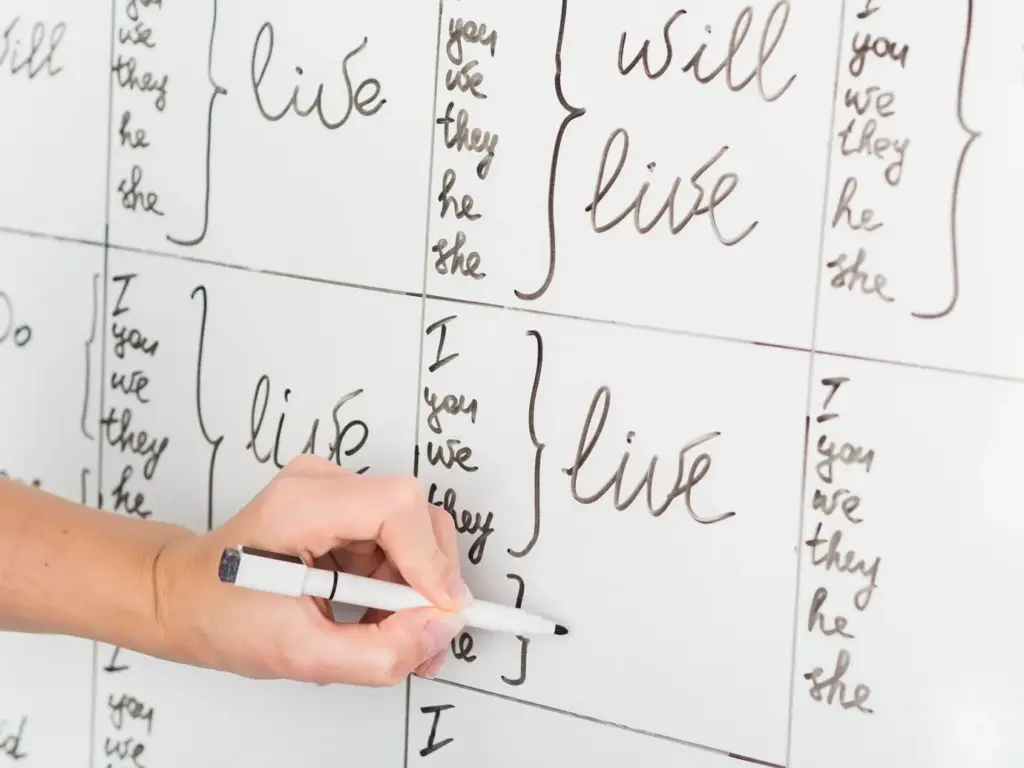 will
you
we
they
he
she
live
you
we
they
he
she
will
live
I
you
we
they
he
she
Do
I
you
we
they
he
live
I
you
we
they
he
live
I
you
we
they
he
she
I
you
we
I